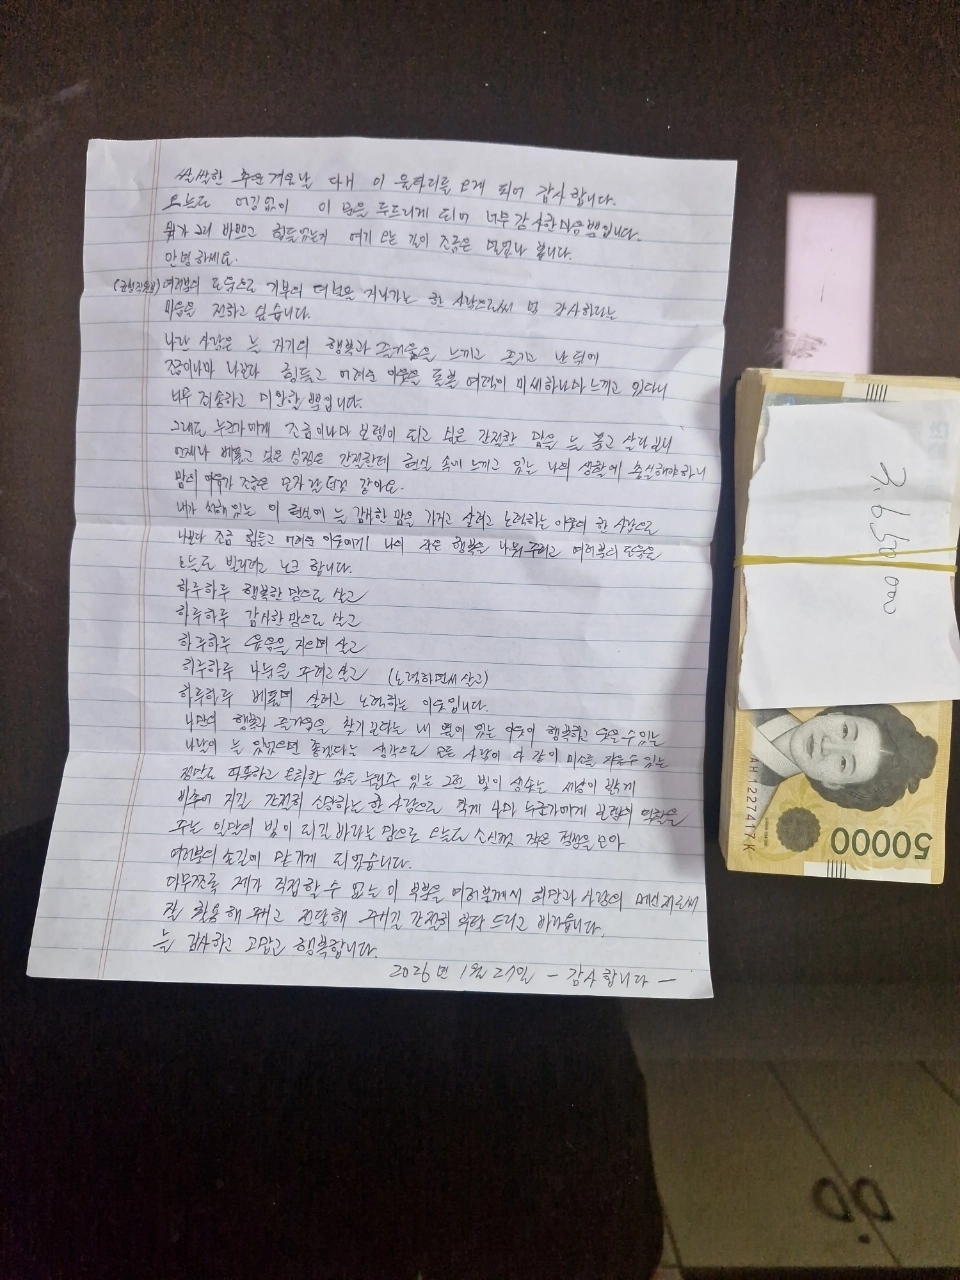 쌀쌀한 추운 겨울날 다시 이 울타리를 오게 되어 감사 합니다.
오늘도 어김없이 이 문을 두드리게 되어 너무 감사한 마음뿐입니다.
뭐가 그리 바쁘고 힘들었는지 여기 오는 길이 조금은 멀었나 봅니다.
안녕하세요.
여러분의 도움으로 기부의 려본은 지나가는 한 사람으로써 맘 감사하다는
마음을 전하고 싶습니다.
나란 사람은 늘 자기의 행복과 즐거움을 느끼고 즐기고 난 뒤에
조금이나마 나보다 힘들고 어려운 이웃을 돌볼 여력이 미세하나마 느끼고 있다니
너무 죄송하고 미안할 뿐입니다.
그래도 누군가에게 조금이나마 보탬이 되고 싶은 간절한 맘을 늘 품고 살다보니
언제나 베풀고 싶은 심정은 간절한데 현실 속에 느끼고 있는 나의 생활에 충실해야하니
맘의 여유가 조금은 모자랐던것 같아요.
내가 처해있는 이 현실에 늘 감사한 맘을 가지고 살려고 노력하는 이웃의 한 사람으로
나보다 조금 힘들고 어려운 이웃에게 나의 작은 행복을 나눠 주려고 여러분의 도움을
오늘도 빌리려고 노크 합니다.
하루하루 행복한 맘으로 살고
하루하루 감사한 맘으로 살고
하루하루 웃음을 지으며 살고
하루하루 나눔을 주려고 살고 (노력하면서 살고)
하루하루 베풀며 살려고 노력하는 이웃입니다.
나만의 행복과 즐거움을 찾기 보다는 내 옆에 있는 이웃이 행복하고 웃을 수 있는
나날이 늘 있었으면 좋겠다는 생각으로 모든 사람이 다 같이 미소를 지을 수 있는
정말로 따뜻하고 온화한 삶을 누릴수 있는 그런 빛이 샘솟는 세상이 밝게
비추어 지길 간절히 소망하는 한 사람으로 작게 나마 누군가에게 보탬의 역할을
주는 일말의 빛이 되길 바라는 맘으로 오늘도 소신껏 작은 정성을 모아
여러분의 손길에 맡기게 되었습니다.
아무쪼록 제가 직접 할 수 없는 이 부분을 여러분께서 희망과 사랑의 메신저로써
잘 활용해 주시고 전달해 주시길 간절히 부탁 드리고 바라옵니다.
늘 감사하고 고맙고 행복합니다.
2026년 1월 27일 - 감사합니다 -
3,650,000
AH1227417K
50000